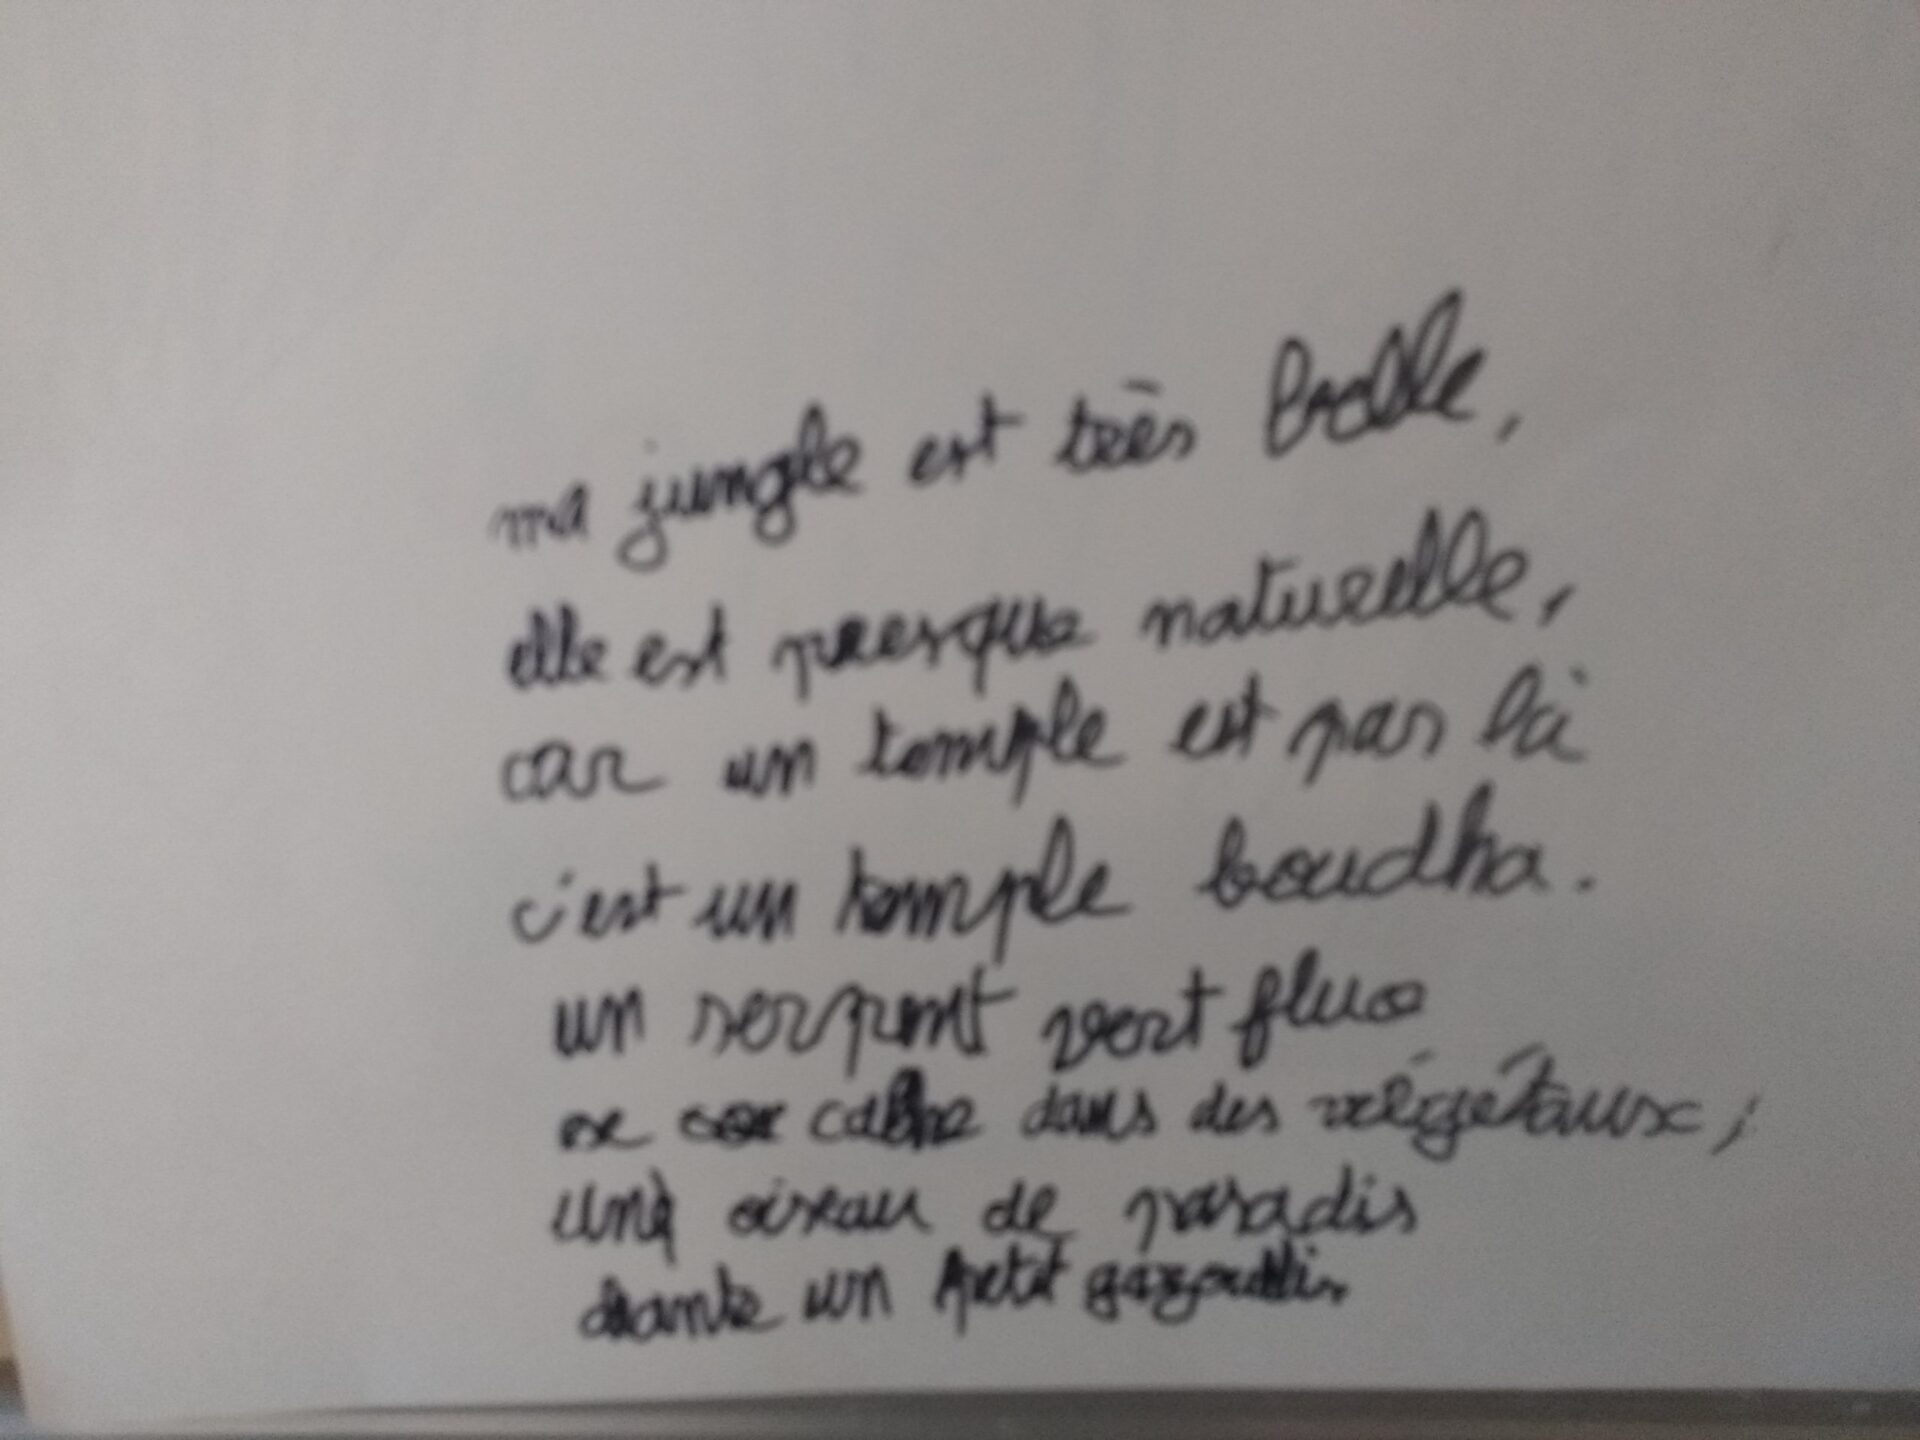 ma jungle est très belle,
elle est presque naturelle,
car un temple est par là
c'est un temple boudha.
un serpent vert fluo
se cache dans des végétaux,
un oiseau de paradis
chante un petit gazouillis